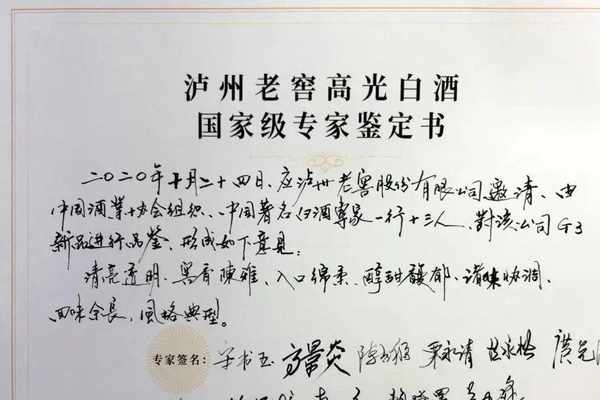 泸州老窖高光白酒
国家级专家鉴定书
二〇二〇年十月二十四日、应泸州老窖股份有限公司邀请、由
中国酒业协会组织、中国著名白酒专家一行十三人、对该公司G3
新品进行品鉴、形成如下意见:
清亮透明、窖香陈雅、入口绵柔、醇甜馥郁、诸味协调、
回味余长、风格典型。
专家签名: